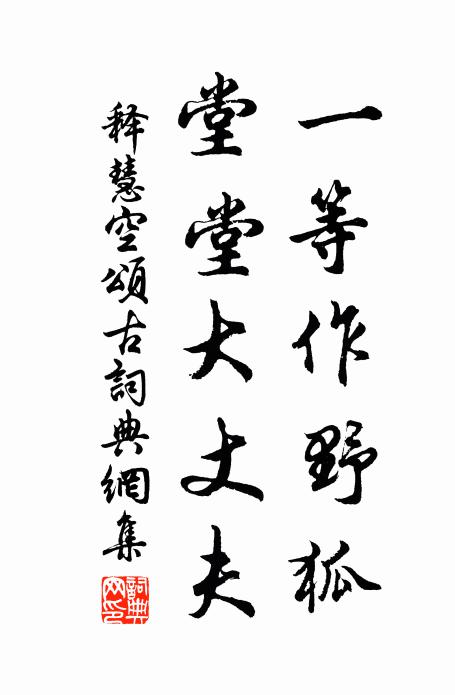 一等作野狐
堂堂大丈夫
释慧空頌古詞典網集
詞典網印